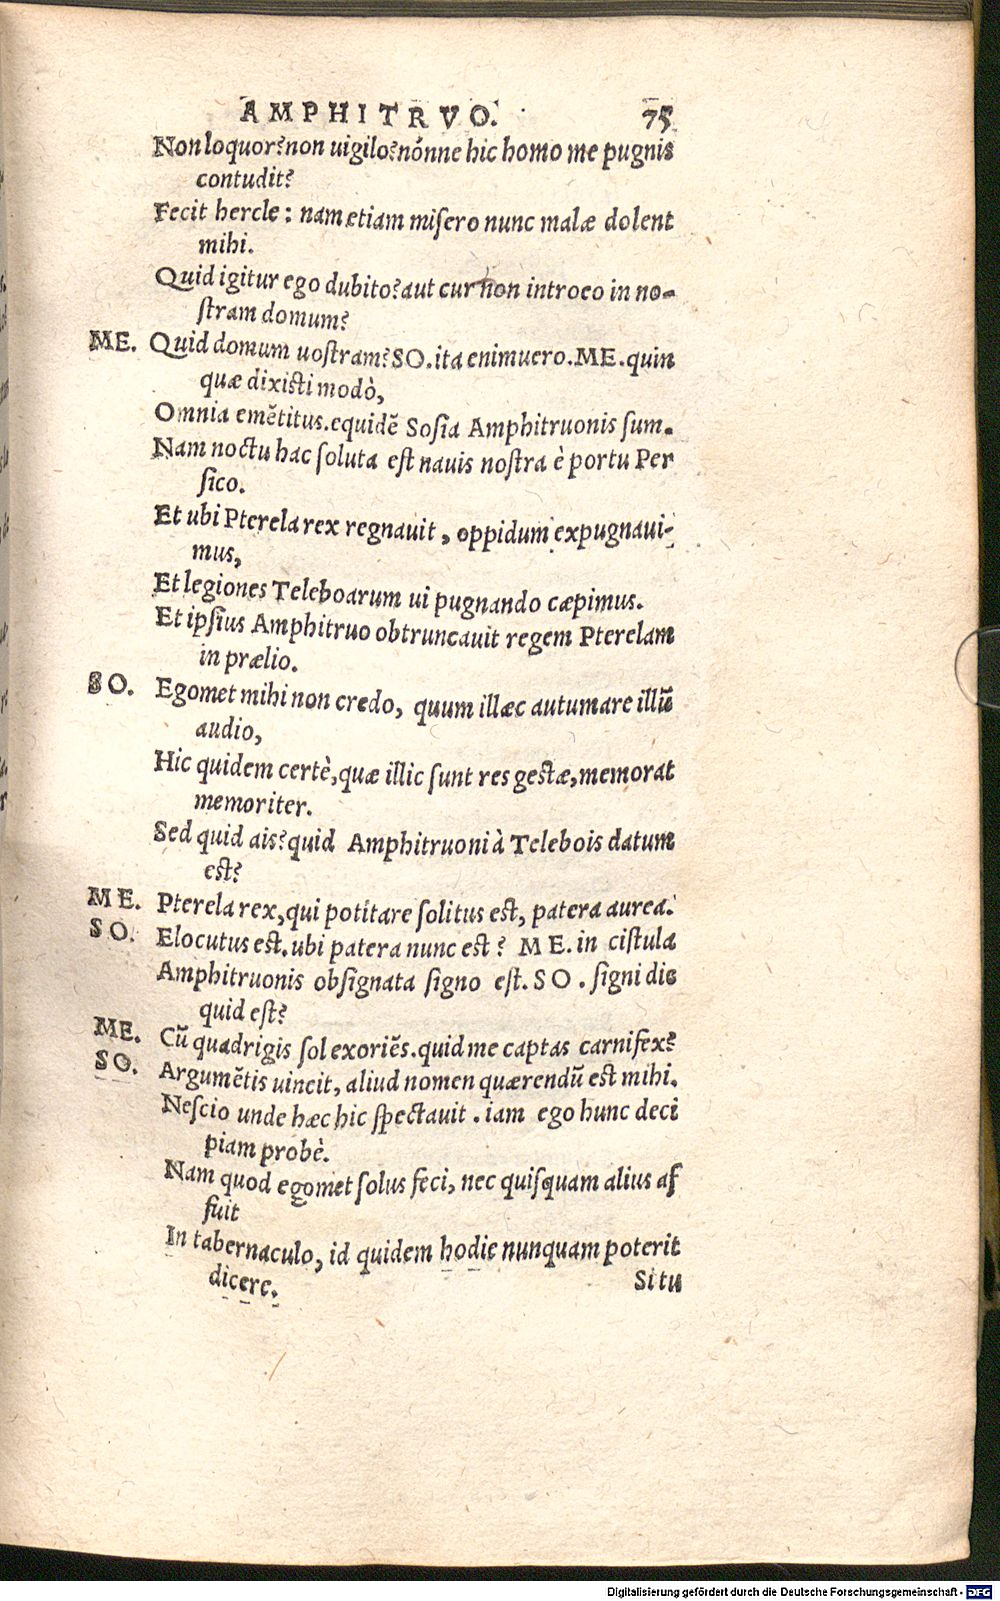 AMPHITRVO. 75
Non loquor? non uigilo? nónne hic homo me pugnis
contudit?
Fecit hercle: nam etiam miſero nunc malæ dolent
mihi.
Quid igitur ego dubito? aut cur non introeo in no-
ſtram domum?
ME. Quid domum uoſtram? SO. ita enimuero. ME. quin
quæ dixiſti modò,
Omnia emẽtitus. equidẽ Soſia Amphitruonis ſum.
Nam noctu hac ſoluta eſt nauis noſtra è portu Per
ſico.
Et ubi Pterela rex regnauit, oppidum expugnaui-
mus,
Et legiones Teleboarum ui pugnando cæpimus.
Et ipſius Amphitruo obtruncauit regem Pterelam
in prælio.
SO. Egomet mihi non credo, quum illæc autumare illũ
audio,
Hic quidem certè, quæ illic ſunt res geſtæ, memorat
memoriter.
Sed quid ais? quid Amphitruoni à Telebois datum
eſt?
ME. Pterela rex, qui potitare ſolitus eſt, patera aurea.
SO. Elocutus eſt. ubi patera nunc eſt? ME. in ciſtula
Amphitruonis obſignata ſigno eſt. SO. ſigni dic
quid eſt?
ME. Cũ quadrigis ſol exoriẽs. quid me captas carnifex?
SO. Argumẽtis uincit, aliud nomen quærendũ eſt mihi.
Neſcio unde hæc hic ſpectauit. iam ego hunc deci
piam probè.
Nam quod egomet ſolus feci, nec quiſquam alius af
fuit
In tabernaculo, id quidem hodie nunquam poterit
dicere. Si tu
Digitalisierung gefördert durch die Deutsche Forschungsgemeinschaft - DFG